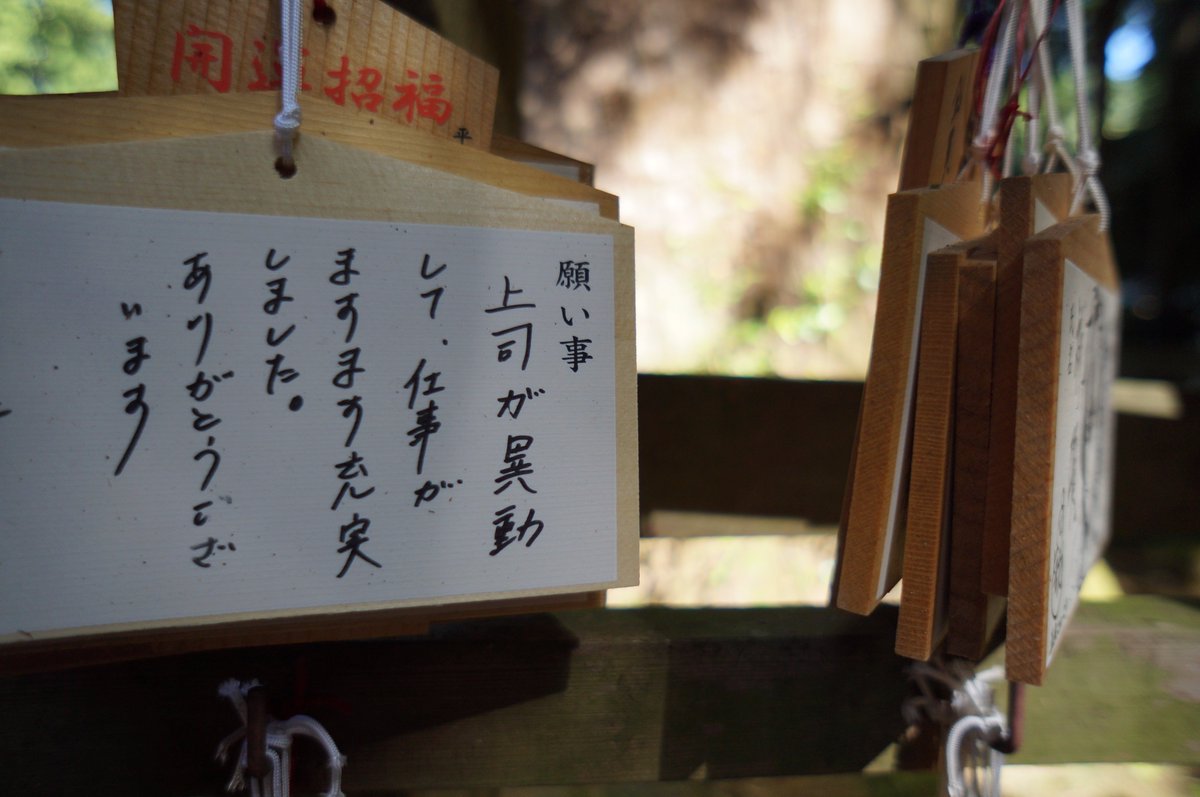 開運招福
平
願い事
上司が異動
して、仕事が
ますます充実
しました。
ありがとうござ
います